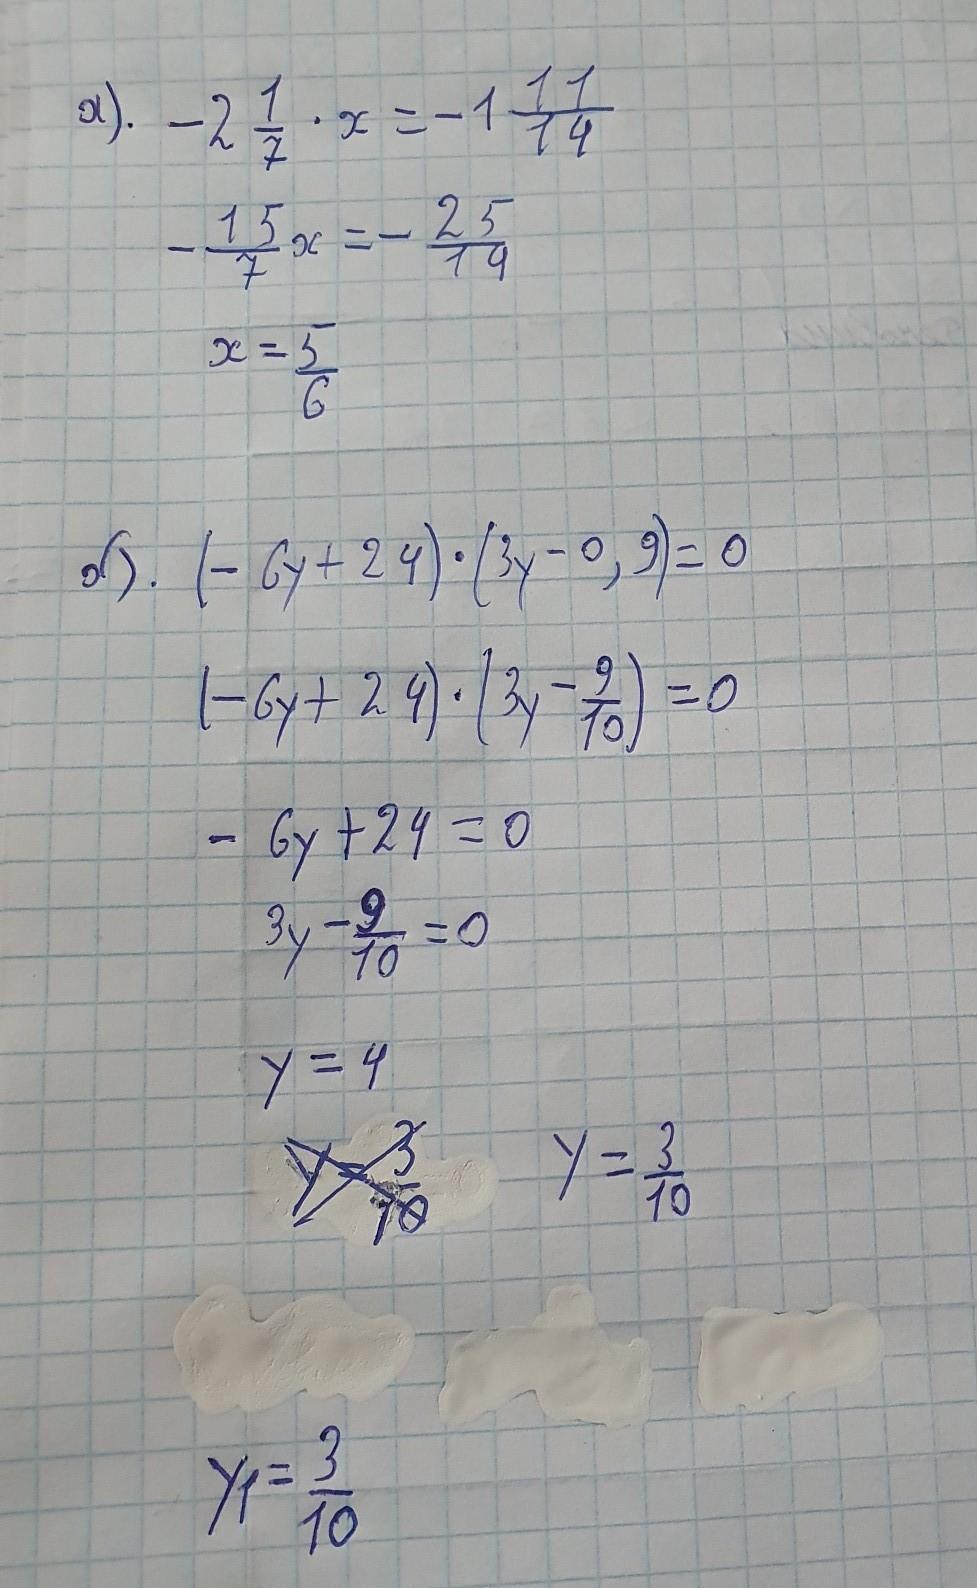 а). -2 1/7 · x = -1 11/14
- 15/7 x = - 25/14
x = 5/6
б). (- 6y + 24) · (3y - 0,9) = 0
(- 6y + 24) · (3y - 9/10) = 0
- 6y + 24 = 0
3y - 9/10 = 0
y = 4
y = 3/10 y = 3/10
y1 = 3/10